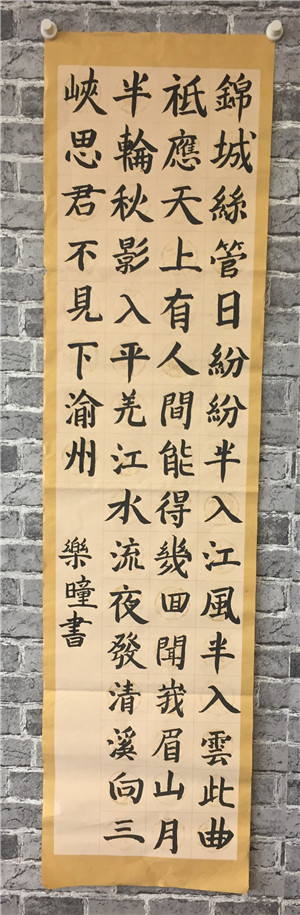 錦城絲管日紛紛半入江風半入雲此曲
祗應天上有人間能得幾回聞峩眉山月
半輪秋影入平羌江水流夜發清溪向三
峽思君不見下渝州
樂瞳書